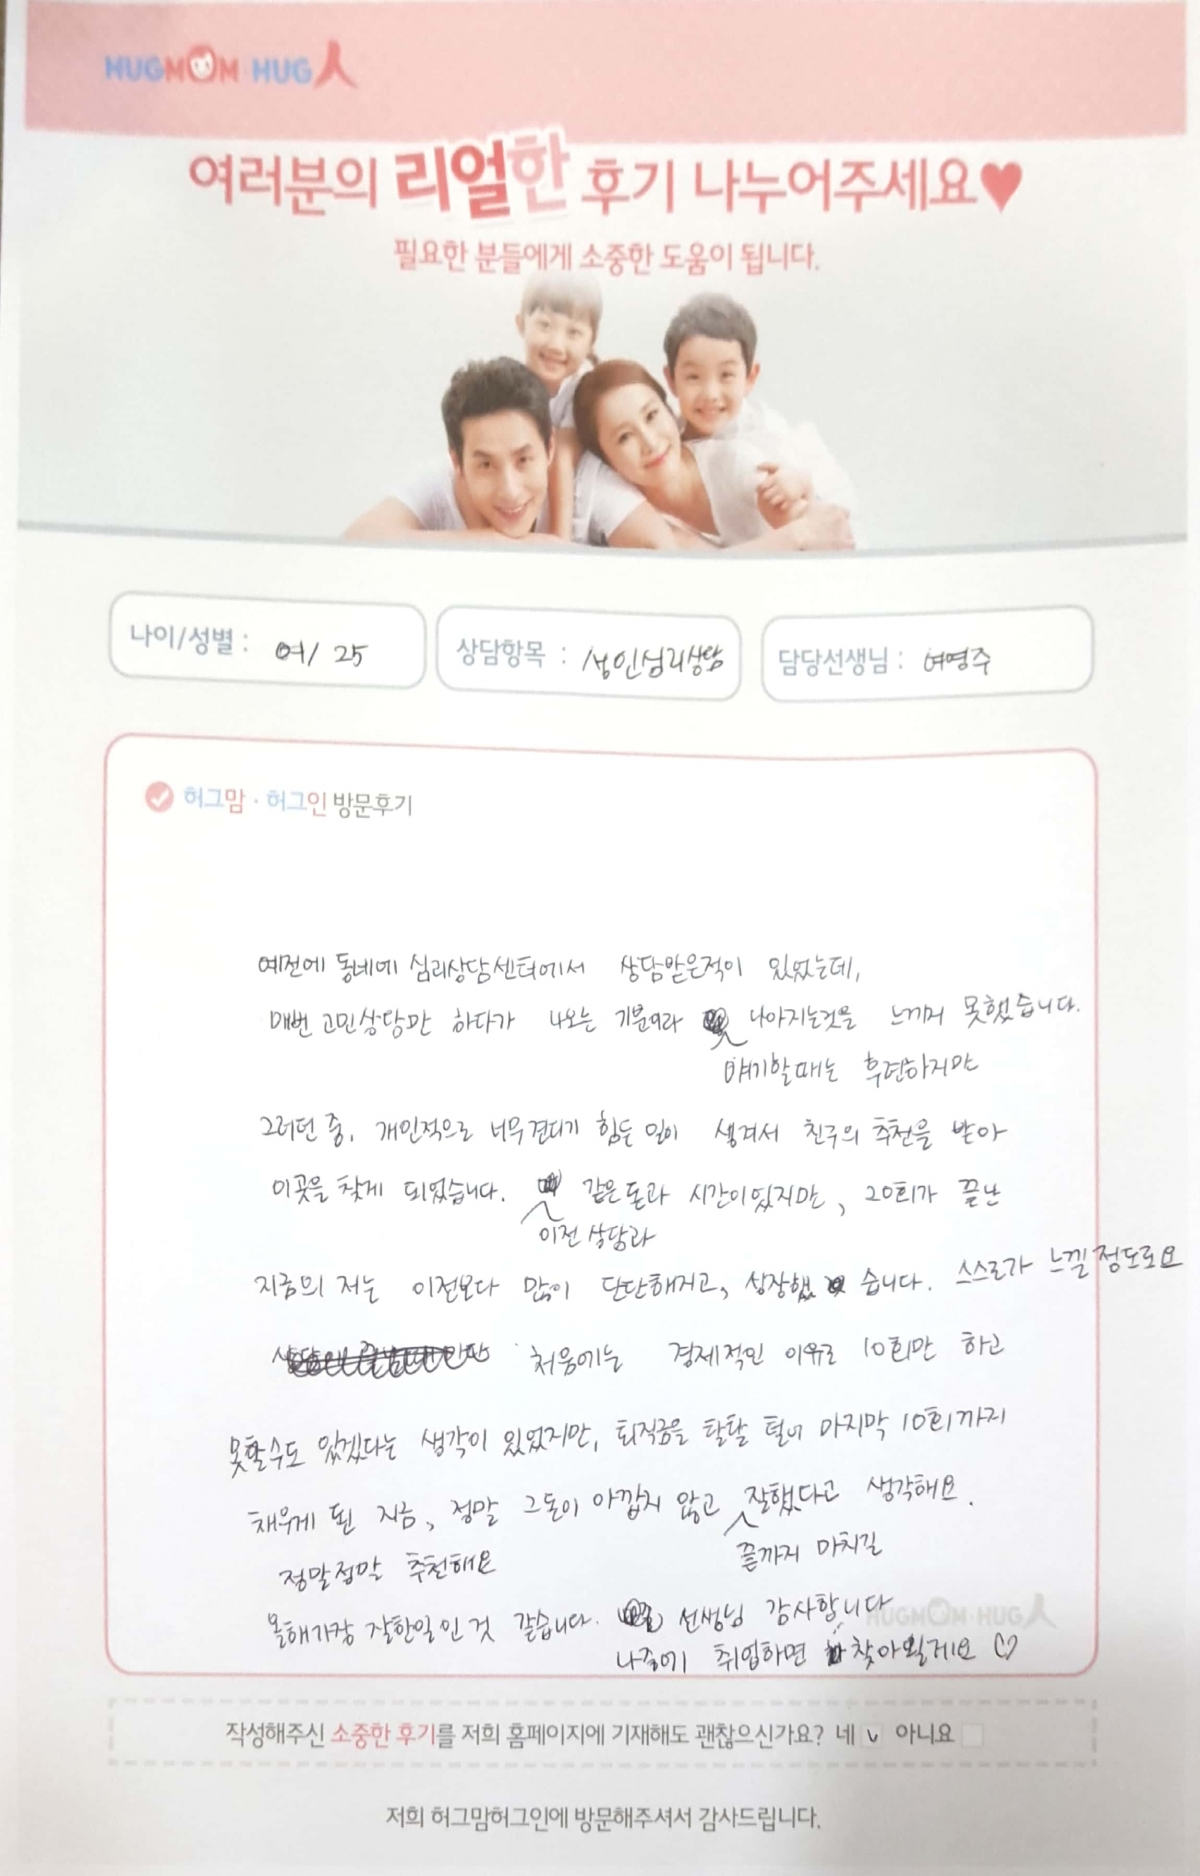 HUGMOM HUG人
여러분의 리얼한 후기 나누어주세요♥
필요한 분들에게 소중한 도움이 됩니다.
나이/성별 : 여/ 25
상담항목 : 성인심리상담
담당선생님 : 여명주
허그맘 · 허그인 방문후기
예전에 동네에 심리상담센터에서 상담받은적이 있었는데,
매번 고민상담만 하다가 나오는 기분이라 나아지는것을 느끼지 못했습니다.
얘기할때는 후련하지만
그러던 중, 개인적으로 너무 견디기 힘든 일이 생겨서 친구의 추천을 받아
이곳을 찾게 되었습니다. 같은 돈과 시간이 있지만, 20회가 끝난
이전 상담과
지금의 저는 이전보다 많이 단단해지고, 성장했습니다. 스스로가 느낄 정도로요
처음에는 경제적인 이유로 10회만 하고
못할수도 있겠다는 생각이 있었지만, 퇴직금을 탈탈 털어 마지막 10회까지
채우게 된 지금, 정말 그돈이 아깝지 않고 잘했다고 생각해요.
끝까지 마치길
정말정말 추천해요
올해가장 잘한일인것 같습니다. 선생님 감사합니다
HUGMOM HUG人
나중에 취업하면 찾아뵐게요 ♡
작성해주신 소중한 후기를 저희 홈페이지에 기재해도 괜찮으신가요? 네 ✓ 아니요
저희 허그맘허그인에 방문해주셔서 감사드립니다.